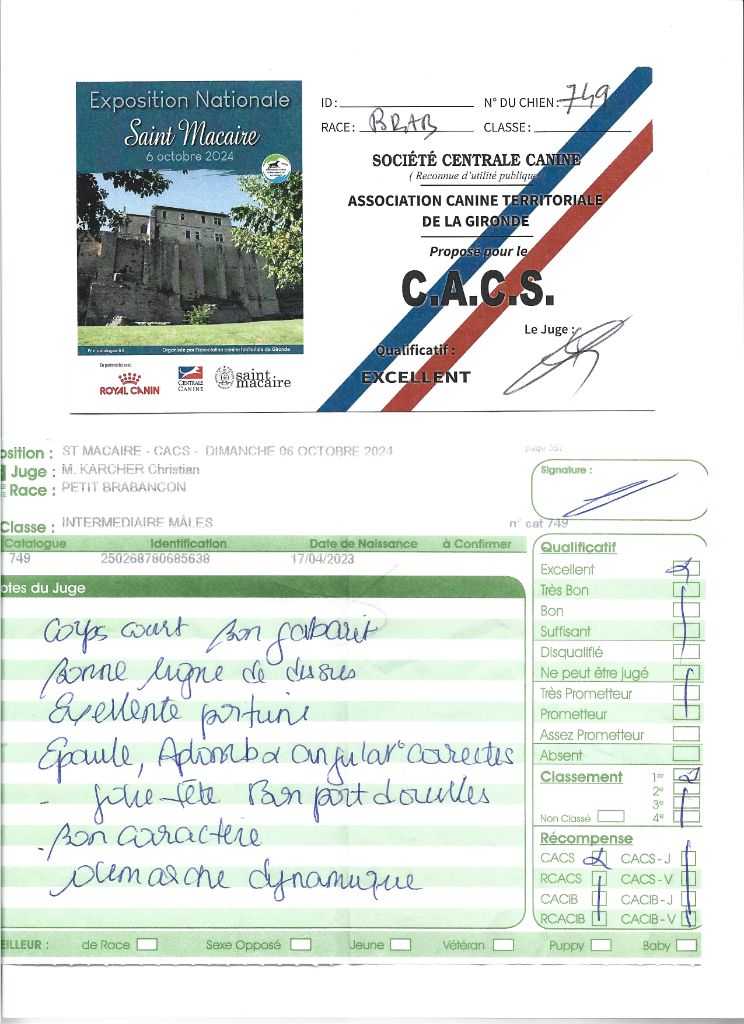 Exposition Nationale
Saint Macaire
6 octobre 2024
Organisée par l'association canine territoriale de Gironde
En partenariat avec
ROYAL CANIN
CENTRALE CANINE
saint macaire
ID : N° DU CHIEN : 749
RACE : BRAB CLASSE :
SOCIÉTÉ CENTRALE CANINE
( Reconnue d'utilité publique )
ASSOCIATION CANINE TERRITORIALE
DE LA GIRONDE
Proposé pour le
C.A.C.S.
Le Juge :
Qualificatif :
EXCELLENT
osition : ST MACAIRE - CACS - DIMANCHE 06 OCTOBRE 2024
Juge : M. KARCHER Christian
Race : PETIT BRABANCON
Classe : INTERMEDIAIRE MÂLES n° cat 749
Signature :
Catalogue Identification Date de Naissance à Confirmer
749 250268780685638 17/04/2023
otes du Juge
Corps court Bon gabarit
Bonne ligne de dessus
Excellente poitrine
Epaule, Aplomb & angulat° correctes
- Jolie tête Bon port d'oreilles
- Bon caractère
Démarche dynamique
Qualificatif
Excellent
Très Bon
Bon
Suffisant
Disqualifié
Ne peut être jugé
Très Prometteur
Prometteur
Assez Prometteur
Absent
Classement 1er
2e
3e
Non Classé 4e
Récompense
CACS CACS - J
RCACS CACS - V
CACIB CACIB - J
RCACIB CACIB - V
EILLEUR : de Race Sexe Opposé Jeune Vétéran Puppy Baby